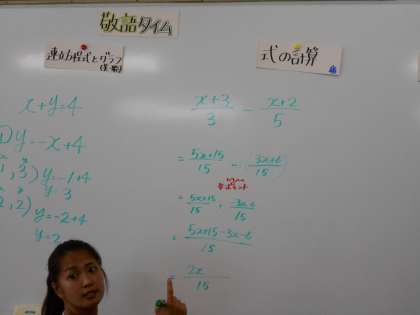 敬語タイム
連立方程式とグラフ
式の計算
x+y=4
y=-x+4
y=-1+4
y=3
y=-2+4
y=2
x+3/3 - x+2/5
= 5x+15/15 - 3x+6/15
ポイント
= 5x+15/15 , -3x-6/15
= 5x+15-3x-6/15
= 2x/15